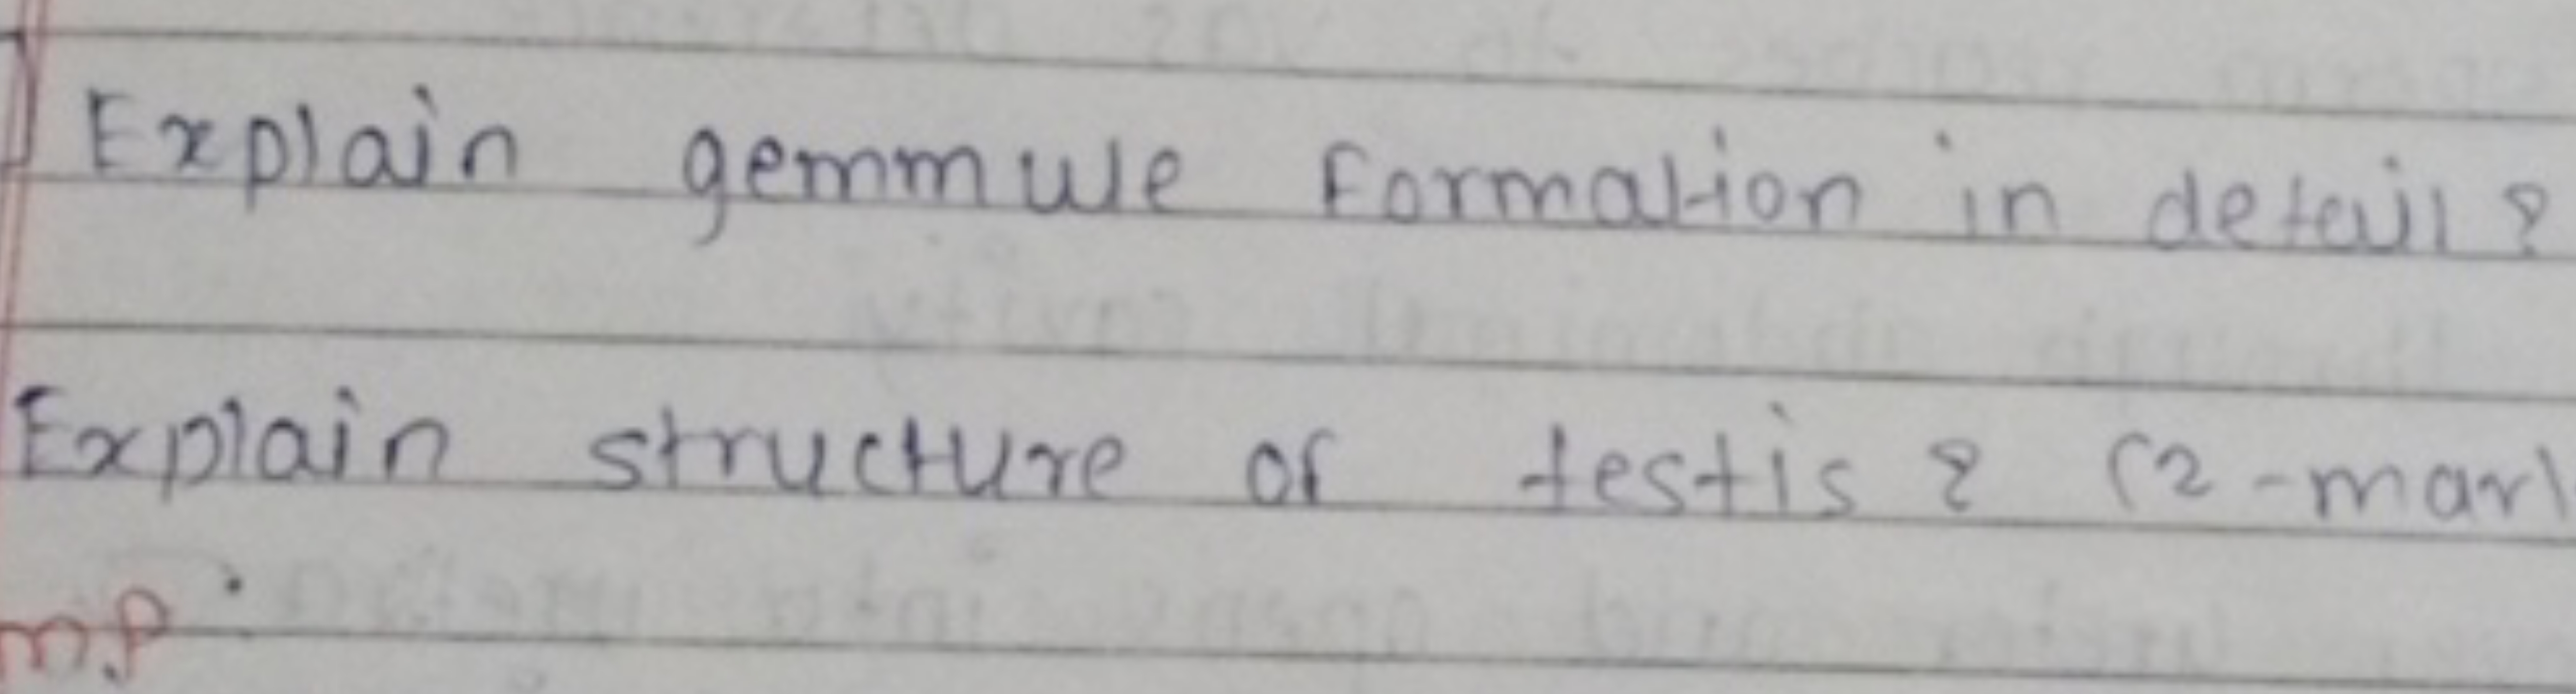 Explain gemmule formation in detail?
Explain structure of testis? (2-mark
m.p.